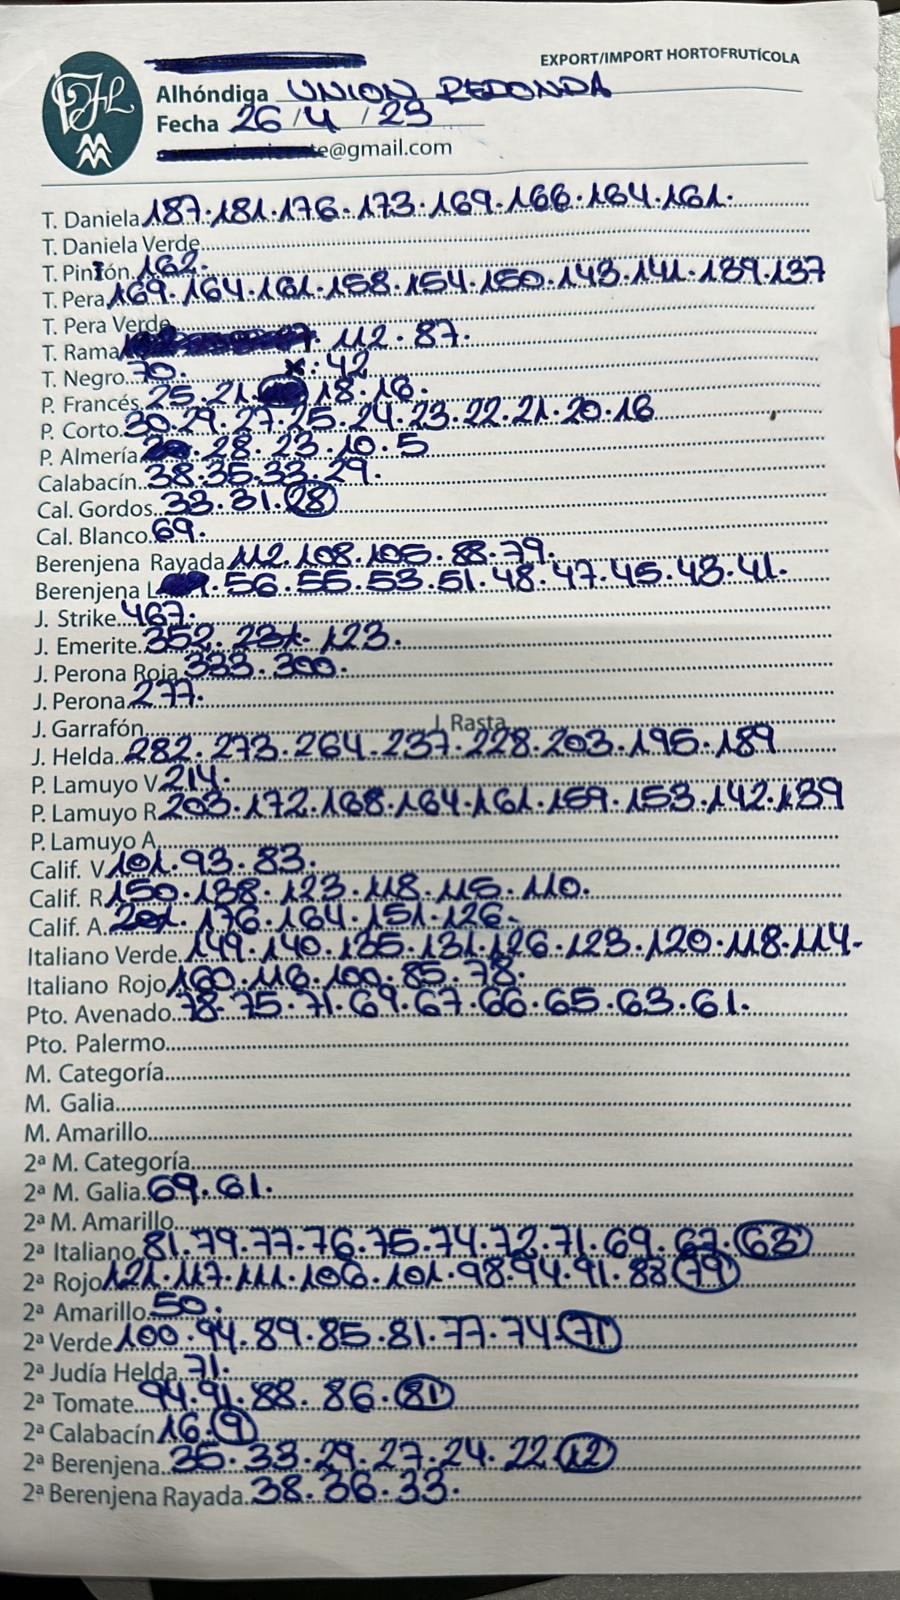 EXPORT/IMPORT HORTOFRUTÍCOLA
Alhóndiga UNION REDONDA
Fecha 26/4/23
e@gmail.com
T. Daniela 187.181.176.173.169.166.164.161.
T. Daniela Verde
T. Pintón 162.
T. Pera 169.164.161.158.154.150.143.141.139.137
T. Pera Verde
T. Rama 112.87.
T. Negro 70. x: 42
P. Francés 25.21. 18.16.
P. Corto 30.29.27.25.24.23.22.21.20.16
P. Almería 28.23.10.5
Calabacín 38.35.33.29.
Cal. Gordos 33.31.28
Cal. Blanco 69.
Berenjena Rayada 112.108.105.88.79.
Berenjena L 56.55.53.51.48.47.45.43.41.
J. Strike 467.
J. Emerite 352.231.123.
J. Perona Roja 333.300.
J. Perona 277.
J. Garrafón J. Rasta
J. Helda 282.273.264.237.228.203.195.189
P. Lamuyo V 214.
P. Lamuyo R 203.172.168.164.161.159.153.142.139
P. Lamuyo A
Calif. V 101.93.83.
Calif. R 150.138.123.118.115.110.
Calif. A. 201.176.164.151.126.
Italiano Verde 149.140.135.131.126.123.120.118.114.
Italiano Rojo 160.116.100.85.78.
Pto. Avenado 78.75.71.69.67.66.65.63.61.
Pto. Palermo
M. Categoría
M. Galia
M. Amarillo
2ª M. Categoría
2ª M. Galia 69.61.
2ª M. Amarillo
2ª Italiano 81.79.77.76.75.74.72.71.69.67.63
2ª Rojo 121.117.111.106.101.98.94.91.88 79
2ª Amarillo 50.
2ª Verde 100.94.89.85.81.77.74.71
2ª Judía Helda 71.
2ª Tomate 94.91.88.86.81
2ª Calabacín 16.9
2ª Berenjena 35.33.29.27.24.22.12
2ª Berenjena Rayada 38.36.33.